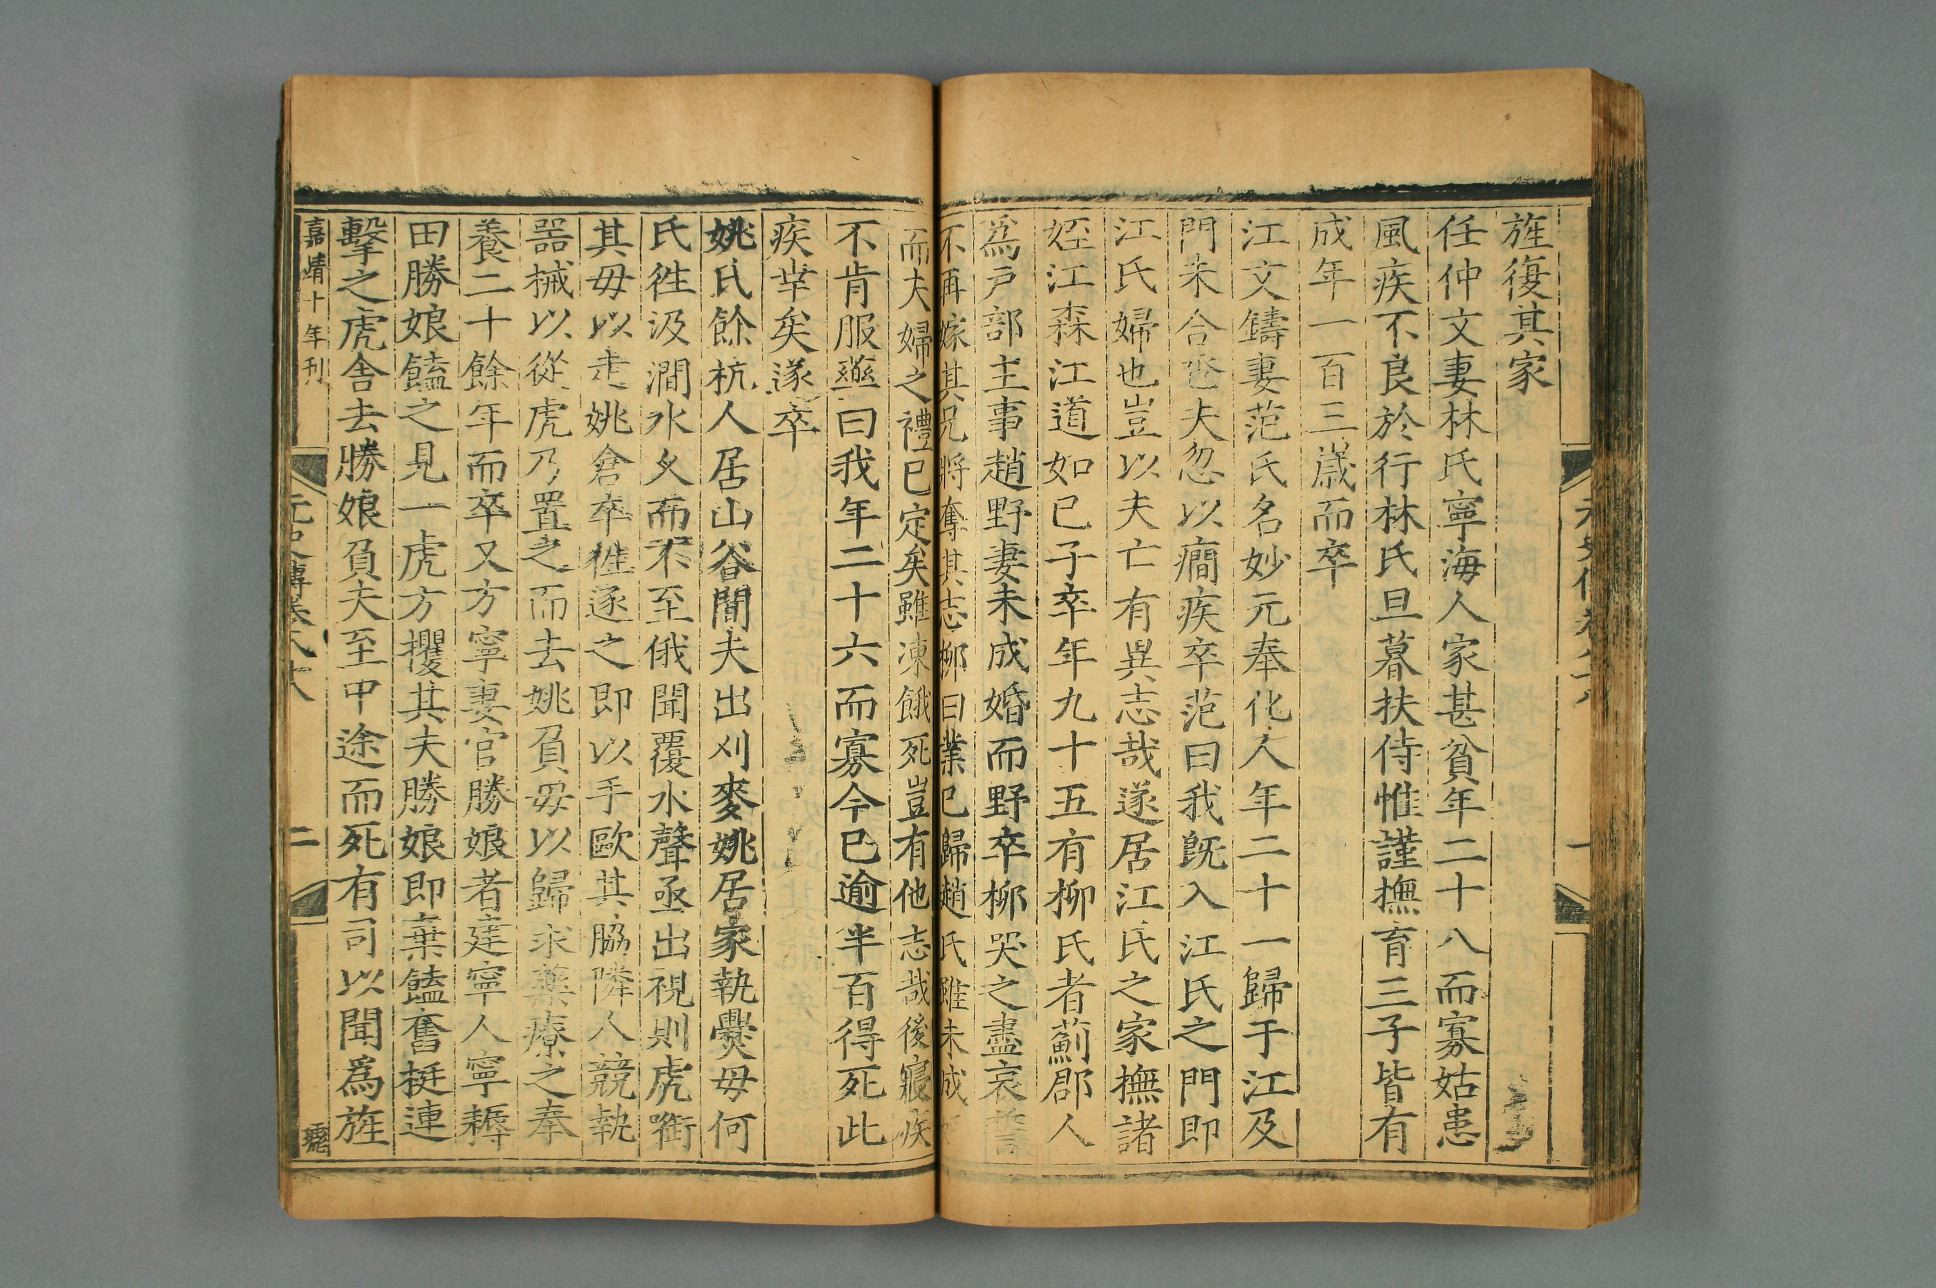 元史傳卷八十八
一
旌復其家
任仲文妻林氏寧海人家甚貧年二十八而寡姑患
風疾不良於行林氏旦暮扶侍惟謹撫育三子皆有
成年一百三歲而卒
江文鑄妻范氏名妙元奉化人年二十一歸于江及
門未合巹夫忽以癎疾卒范曰我既入江氏之門即
江氏婦也豈以夫亡有異志哉遂居江氏之家撫諸
姪江森江道如已子卒年九十五有柳氏者薊郡人
爲戶部主事趙野妻未成婚而野卒柳哭之盡哀誓
不再嫁其兄將奪其志柳曰業已歸趙氏雖未成
而夫婦之禮已定矣雖凍餓死豈有他志哉後寢疾
不肯服藥曰我年二十六而寡今已逾半百得死此
疾幸矣遂卒
姚氏餘杭人居山谷間夫出刈麥姚居家執爨母何
氏徃汲澗水久而不至俄聞覆水聲亟出視則虎銜
其毋以走姚倉卒徃逐之即以手歐其脇隣人競執
器械以從虎乃置之而去姚負毋以歸求藥療之奉
養二十餘年而卒又方寧妻官勝娘者建寧人寧耨
田勝娘饁之見一虎方攫其夫勝娘即棄饁奮挺連
擊之虎舍去勝娘負夫至中途而死有司以聞爲旌
嘉靖十年刊
元史傳卷八十八
二